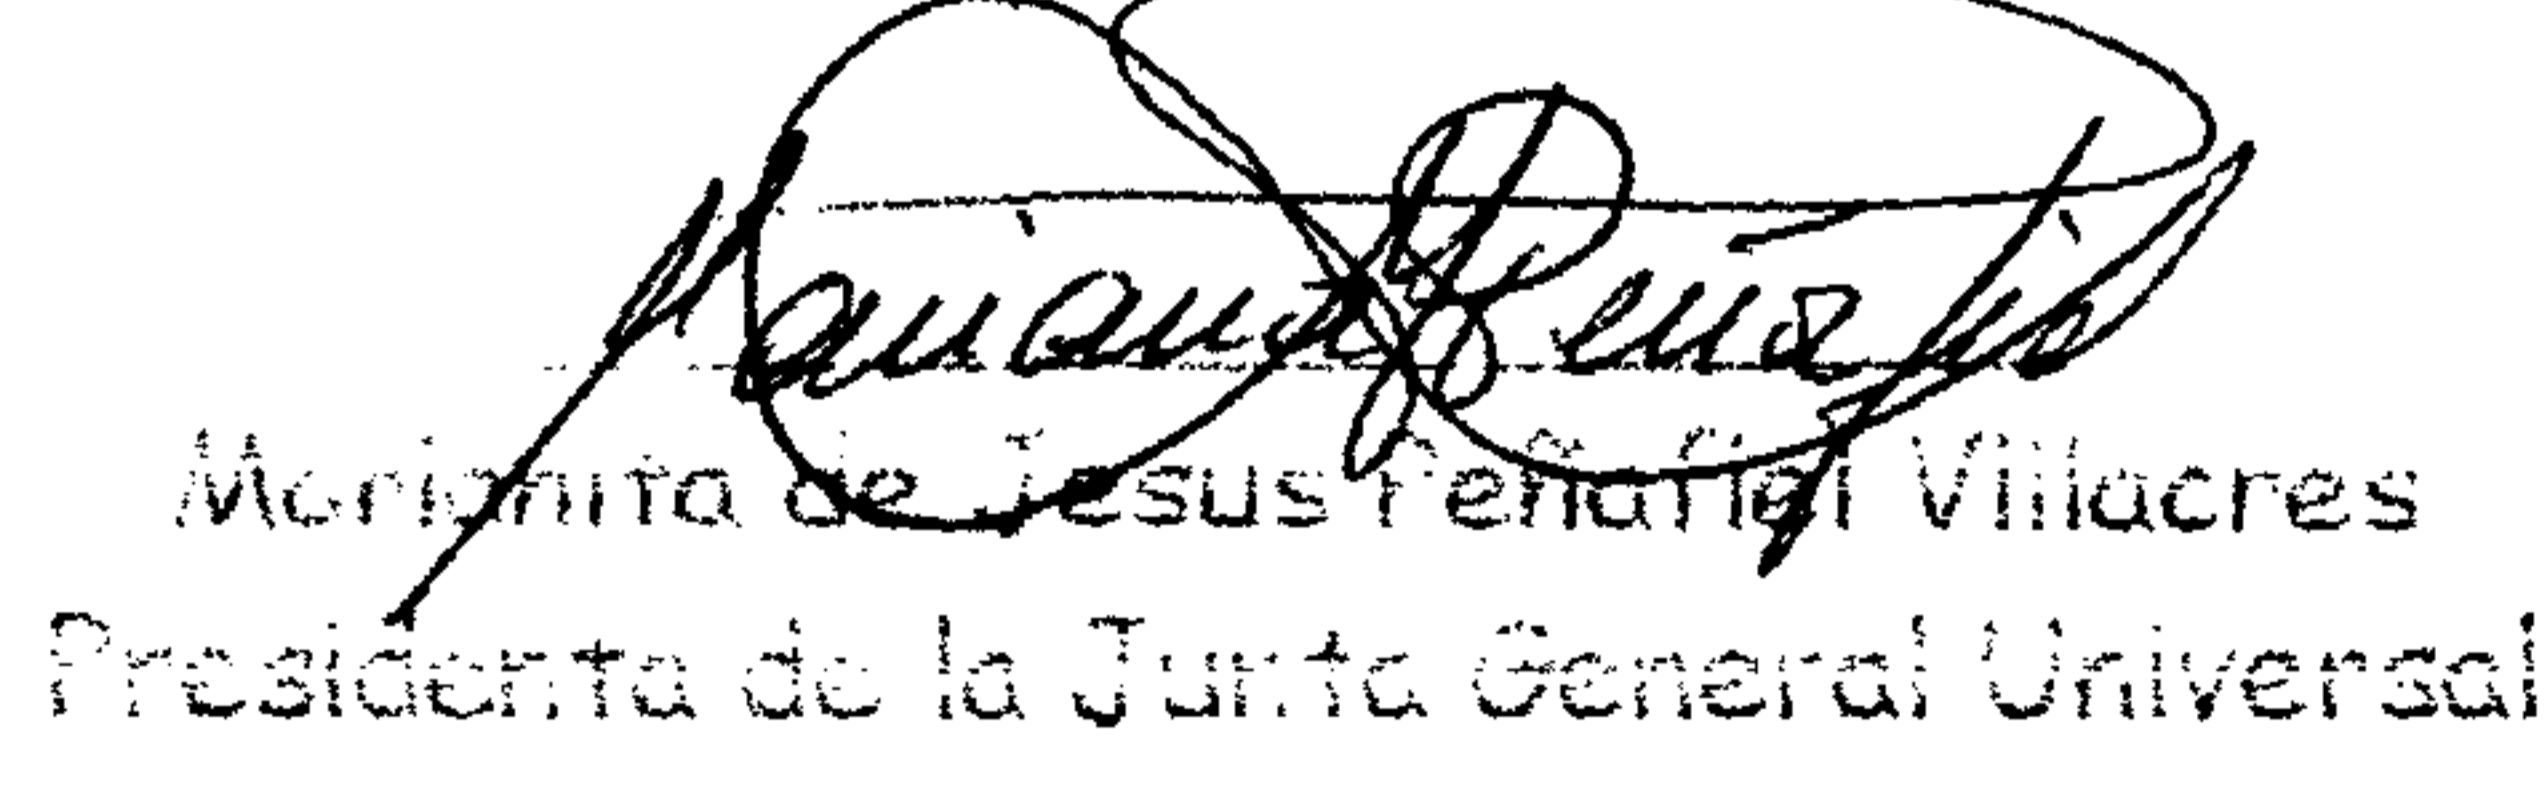 Marianita de Jesus Peñafiel Villacres
Presidenta de la Junta General Universal